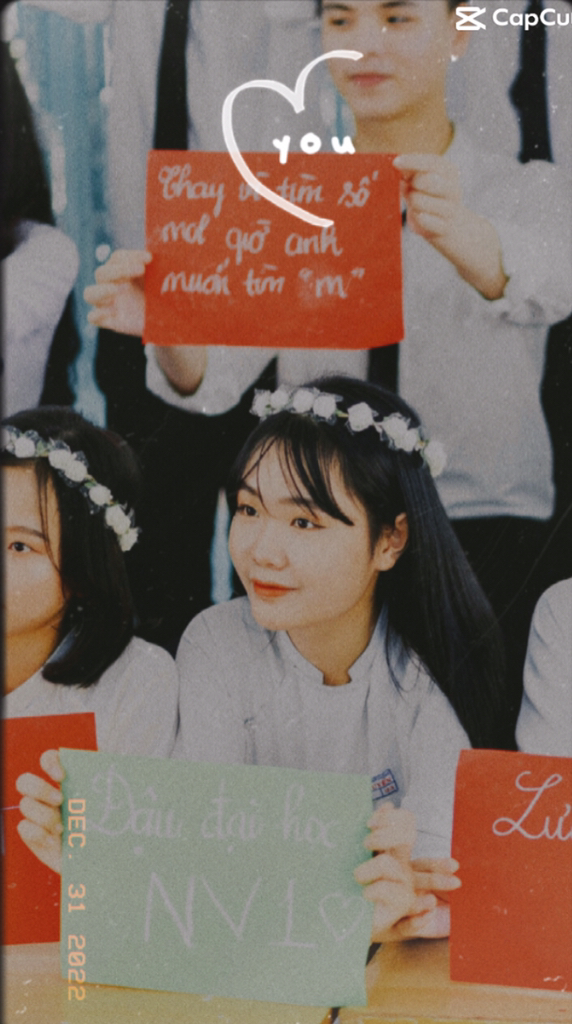 CapCu
you
Thay vì tìm số
mol giờ anh
muốn tìm "m"
Đậu đại học
NVT♡
Lưu
DEC. 31 2022